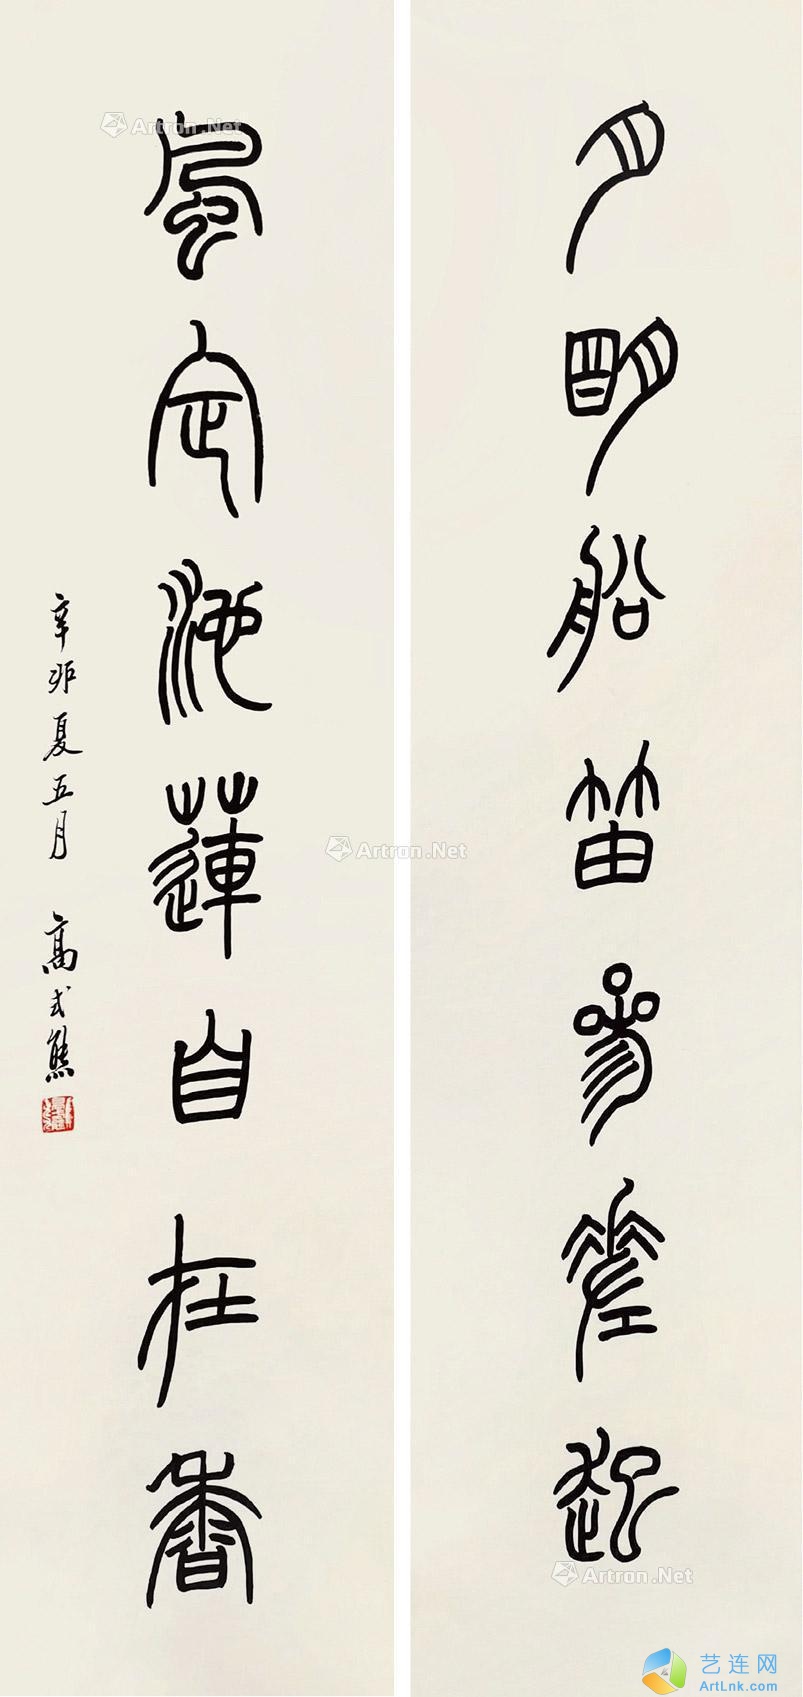 月明船笛參差起
風定池蓮自在香
辛卯夏五月 高式熊
Artron.Net
Artron.Net
Artron.Net
艺连网
ArtLnk.com